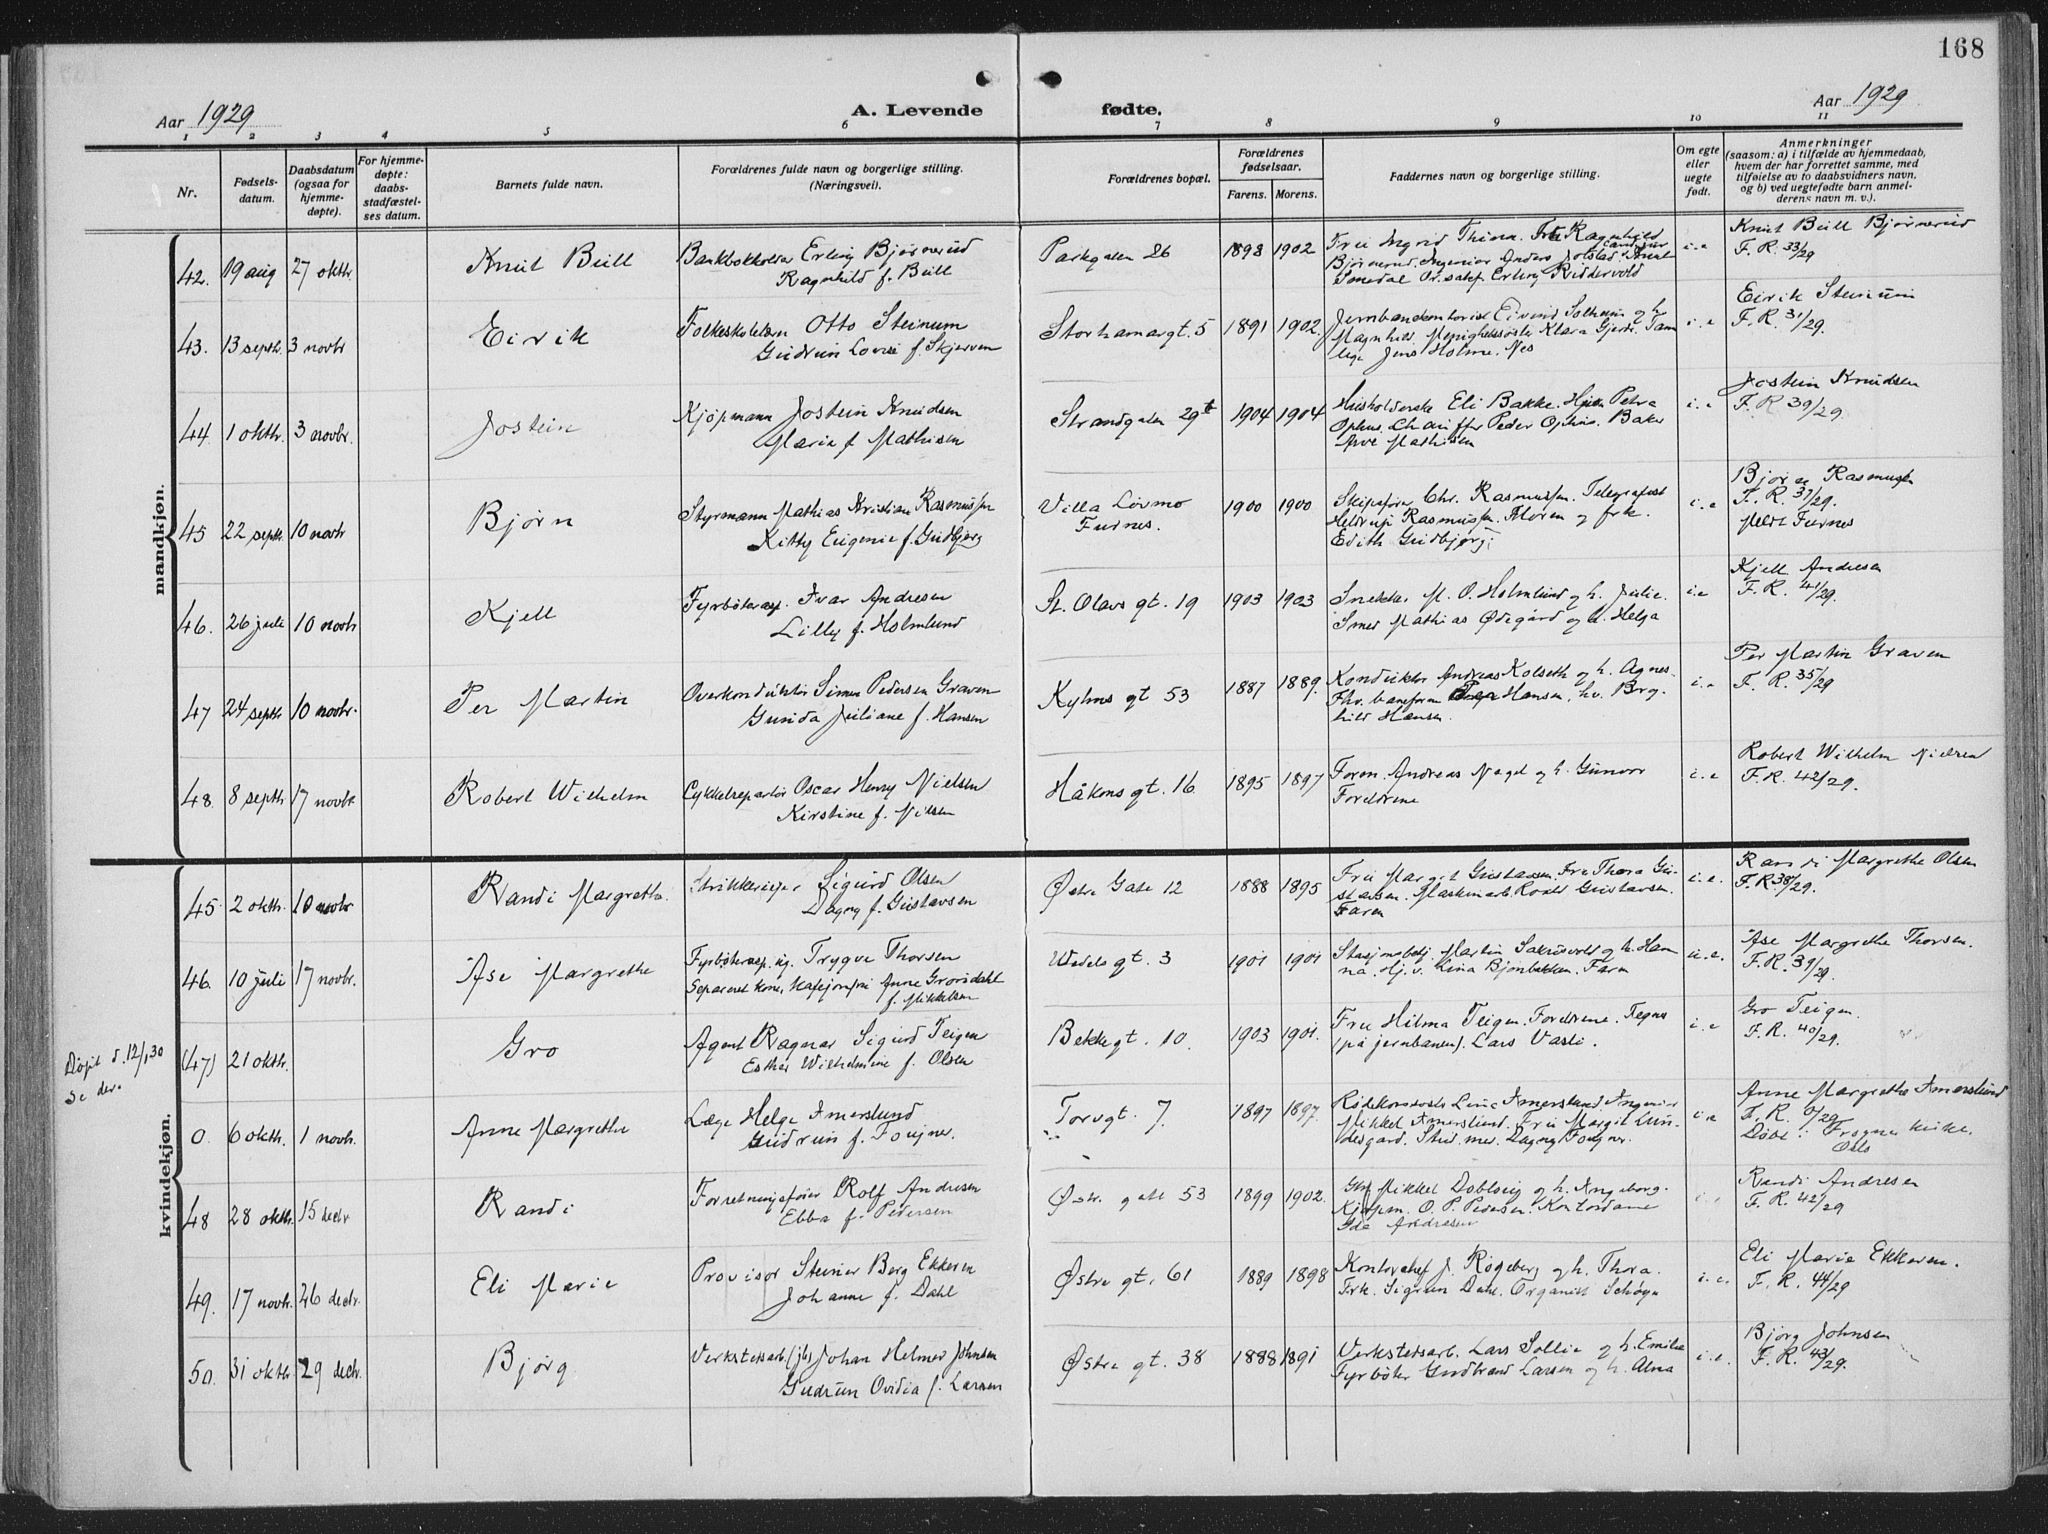 168
Aar 1929
A. Levende fødte.
Aar 1929
1 2 3 4 5 6 7 8 9 10 11
Nr.
Fødsels-
datum.
Daabsdatum
(ogsaa for
hjemme-
døpte).
For hjemme-
døpte:
daabs-
stadfæstel-
ses datum.
Barnets fulde navn.
Forældrenes fulde navn og borgerlige stilling.
(Næringsvei).
Forældrenes bopæl.
Forældrenes
fødselsaar.
Farens. Morens.
Faddernes navn og borgerlige stilling.
Om egte
eller
uegte
født.
Anmerkninger
(saasom: a) i tilfælde av hjemmedaab,
hvem der har forrettet samme, med
tilføielse av to daabsvidners navn,
og b) ved uegtefødte barn anmel-
derens navn m. v.).
mandkjøn.
42. 19 aug 27 oktbr. Knut Bull
Bankbokholder Erling Bjørnerud
Ragnhild f. Bull
Parkgaten 26 1898 1902
Fru Ingrid Thina. Ragnhild
Bjørnerud. Ingeniør Anders Jolstad
Erling Riddervold
i.e
Knut Bull Bjørnerud
F. R. 33/29
43. 13 septb. 3 novbr Eirik
Folkeskolelærer Otto Steinum
Gudrun Lovise f. Skjerven
Storhamargt. 5 1891 1902.
Jernbanekontorist Eivind Solheim og h.
Magnhild. Menighetssøster Klara Gjerdr.
Jens Holme. Nes
i.e
Eirik Steinum
F. R. 31/29.
44. 1 oktbr. 3 novbr. Jostein
Kjøpmann Jostein Knudsen
Maria f. Mathisen
Strandgaten 29 1904 1904
Husholderske Eli Bakke. Petra
Ophus. Chauffør Peder Ophus. Baker
Arve Mathisen
i.e
Jostein Knudsen
F. R. 39/29.
45 22 septb. 10 novbr Bjørn
Styrmann Mathias Kristian Rasmussen
Kitty Eugenie f. Gudbjørg
Villa Lovmo
Furnes.
1900 1900
Skipsfører Chr. Rasmussen. Telegrafist
Rasmussen. Moren og frk.
Edith Gudbjørg.
i.e
Bjørn Rasmussen
F. R. 37/29.
Meldt Furnes
46. 26 juli 10 novbr Kjell
Fyrbøterasp. Ivar Andresen
Lilly f. Holmlund
St. Olavs gt. 19 1903 1903
Snekker M. O. Holmlund og h. Julie.
Smed Mathias Ødegård og h. Helga
i.e
Kjell Andresen
F. R. 41/29.
47 24 septb 10 novbr. Per Martin
Overkonduktør Simen Pedersen Graven
Gunda Juliane f. Hansen
Kyhns gt 53 1887 1889.
Konduktør Andreas Kolseth og h. Agnes.
Fhv. baneform Hansen, hv. Borg-
hild Hansen.
i.e
Per Martin Graven
F. R. 35/29
48. 8 septb 17 novbr. Robert Wilhelm
Cykkelreparatør Oscar Henry Nielsen
Kirstine f. Nilsen
Håkons gt. 16 1895 1897
Form. Andreas Nagel og h. Gunvor
Foreldrene
i.e
Robert Wilhelm Nielsen
F. R. 42/29.
kvindekjøn.
45. 2 oktbr. 10 novbr Randi Margrethe.
Strikkerieier Sigurd Olsen
Dagny f. Gustavsen
Østre Gate 12 1888 1895
Fru Margit Gustavsen. Fru Thora Gu-
stavsen. Maskinarb. Roald Gustavsen.
Faren
i.e.
Randi Margrethe Olsen
F. R. 38/29.
46. 10 juli 17 novbr. Åse Margrethe
Fyrbøterasp. ug. Trygve Thorsen
Separert kone, Anne Grorsdahl
f. Mikkelsen
Wedels gt. 3 1901 1901
Stasjonsbetj. Martin Sakrisvold og h. Han-
na. Hj.v. Lina Bjonbakken. Faren
u.e.
Åse Margrethe Thorsen.
F. R. 39/29.
Døpt d. 12/1 30
Se der.
(47) 21 oktbr. Gro
Agent Ragnar Sigurd Teigen
Esther Wilhelmine f. Olsen
Bekkegt. 10. 1903 1901.
Fru Hilma Teigen. Foreldrene. Tegner
(på jernbanen). Lars Vasli.
i.e
Gro Teigen.
F. R. 40/29.
0. 6 oktbr. 1 novbr. Anne Margrethe
Læge Helge Amerslund
Gudrun f. Fougner.
Torvgt. 7. 1897 1897.
Line Amerslund. Ingeniør
Mikkel Amerslund. Fru Margit Lun-
desgard. Stud. med. Dagny Fougner.
i.e
Anne Margrethe Amerslund
F. R. 0/29
Døbt i Frogner kirke.
Oslo
48 28 oktbr. 15 decbr Randi
Forretningsfører Rolf Andresen
Ebba f. Pedersen
Østr. gate 53 1899 1902.
Mikkel Dobloug og h. Ingeborg.
Kjøpm. O. P. Pedersen. Kontordame
Ida Andresen
i.e
Randi Andresen
F. R. 42/29
49. 17 novbr. 26 decbr. Eli Marie
Provisor Steinar Berg Ekkeren
Johanne f. Dahl
Østre gt. 61 1889 1898
Kontorchef J. Røgeberg og h. Thora.
Frk. Sigrun Dahl. Organist Schøyn
i.e.
Eli Marie Ekkeren.
F. R. 44/29
50. 31 oktbr 29 decbr. Bjørg
Verkstedsarb. (jb) Johan Helmer Johnsen
Gudrun Ovidia f. Larsen
Østre gt. 38 1888 1891
Verkstedsarb. Lars Sollie og h. Emilie
Fyrbøter Gudbrand Larsen og h. Alna
i.e.
Bjørg Johnsen
F. R. 43/29.